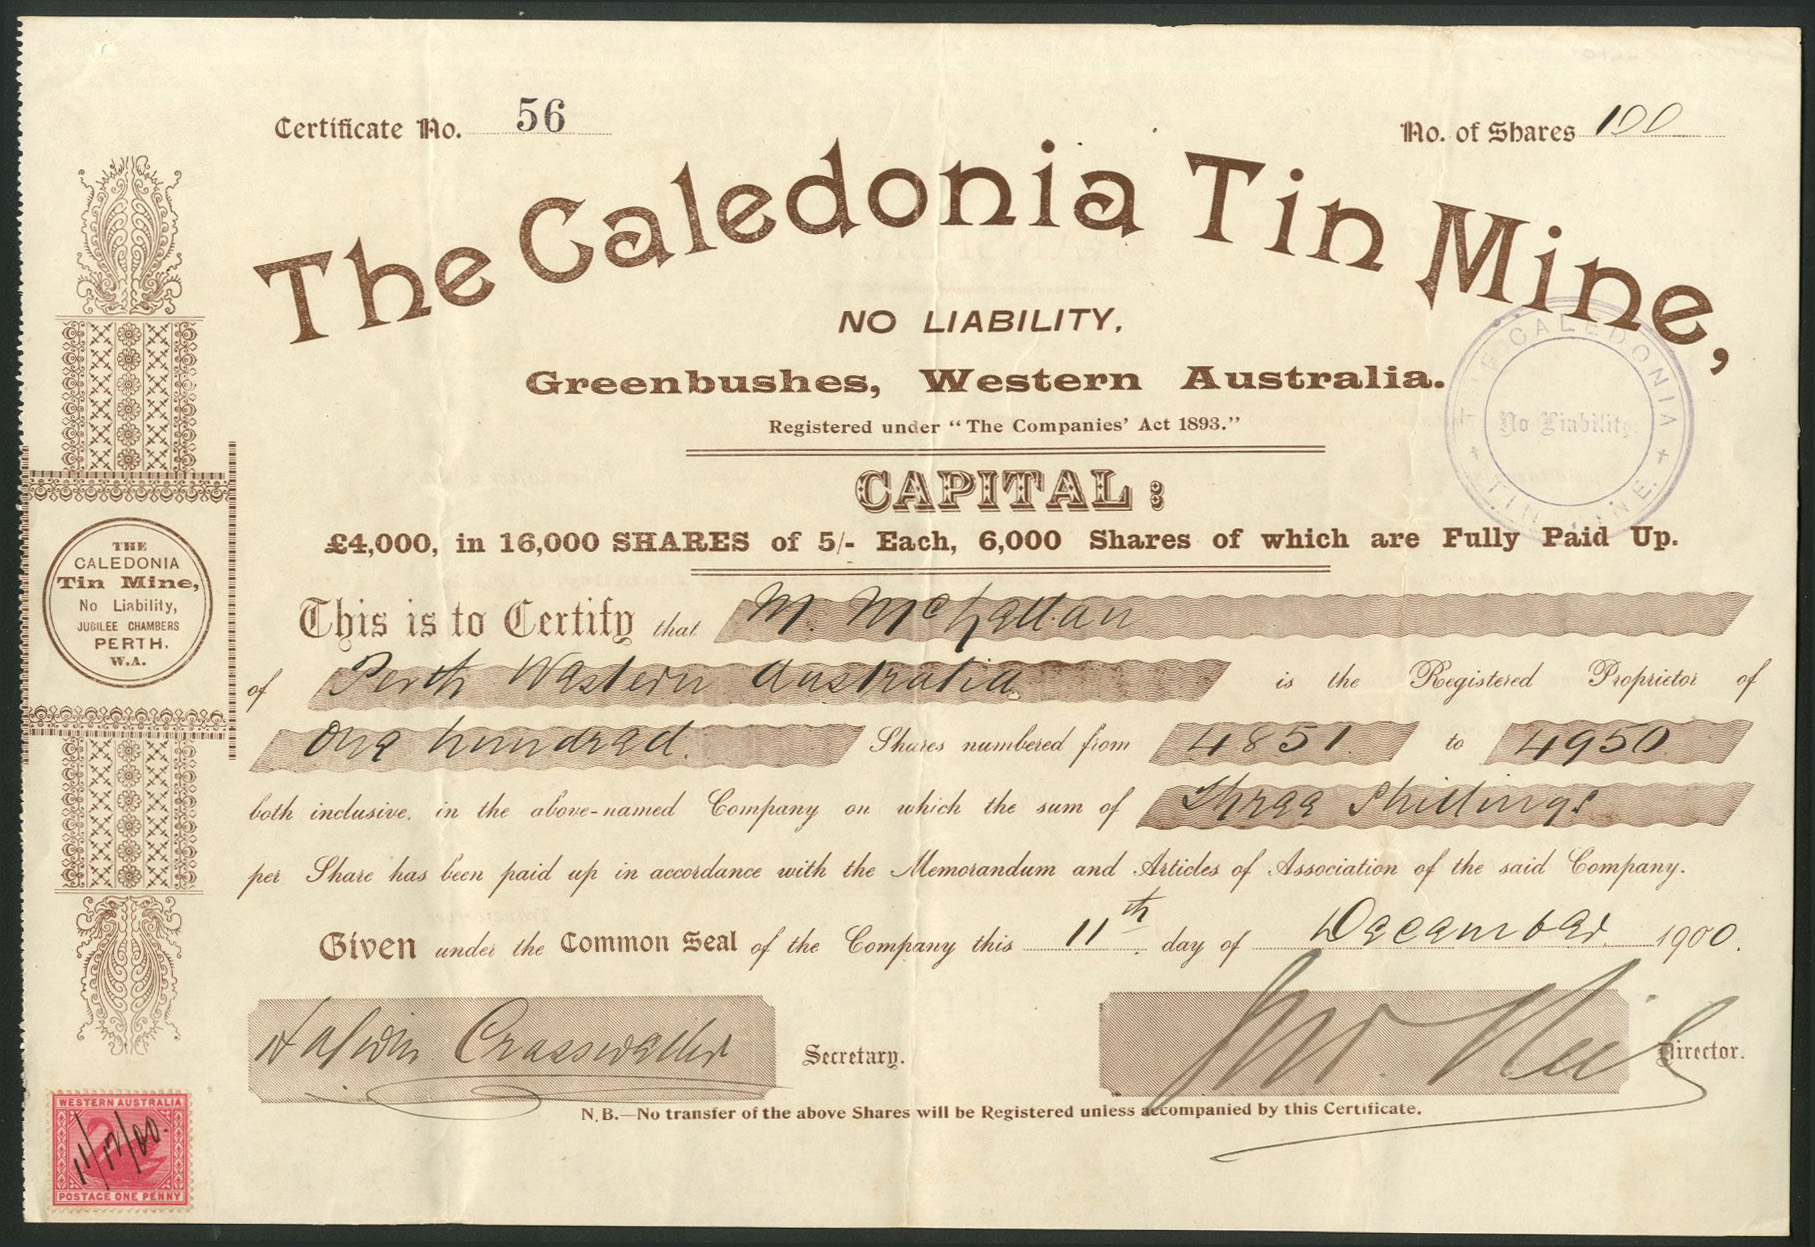 Certificate No. 56
No. of Shares 100
The Caledonia Tin Mine,
NO LIABILITY,
Greenbushes, Western Australia.
Registered under "The Companies' Act 1893."
CAPITAL:
£4,000, in 16,000 SHARES of 5/- Each, 6,000 Shares of which are Fully Paid Up.
THE CALEDONIA TIN MINE.
No Liability.
THE
CALEDONIA
Tin Mine,
No Liability,
JUBILEE CHAMBERS
PERTH,
W.A.
This is to Certify that M.
of Perth Western Australia is the Registered Proprietor of
One hundred Shares numbered from 4851 to 4950
both inclusive, in the above-named Company on which the sum of Three Shillings
per Share has been paid up in accordance with the Memorandum and Articles of Association of the said Company.
Given under the Common Seal of the Company this 11th day of December 1900.
Secretary.
Director.
N.B.—No transfer of the above Shares will be Registered unless accompanied by this Certificate.
WESTERN AUSTRALIA
11/12/00.
POSTAGE ONE PENNY